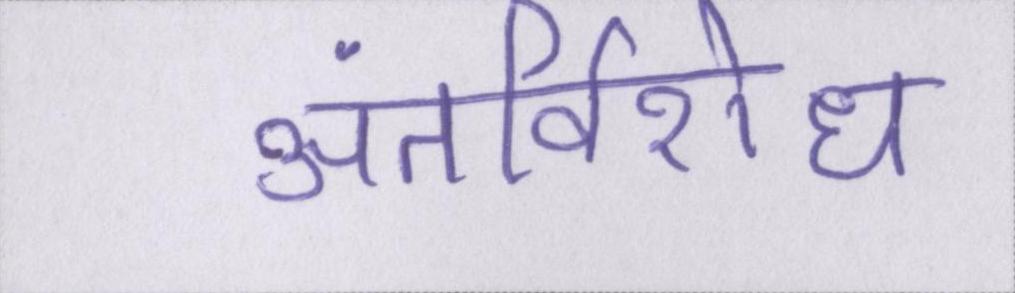 अंतर्विरोध